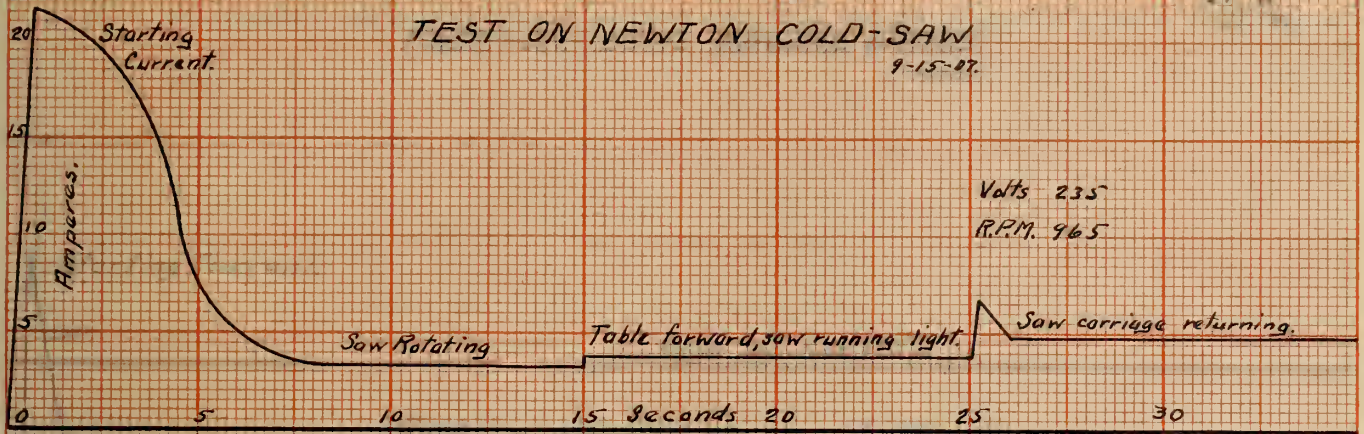 TEST ON NEWTON COLD-SAW
9-15-07.
Starting
Current.
20
15
10
5
Amperes.
Volts 235
R.P.M. 965
Saw Rotating
Table forward, saw running light.
Saw carriage returning.
0 5 10 15 Seconds 20 25 30